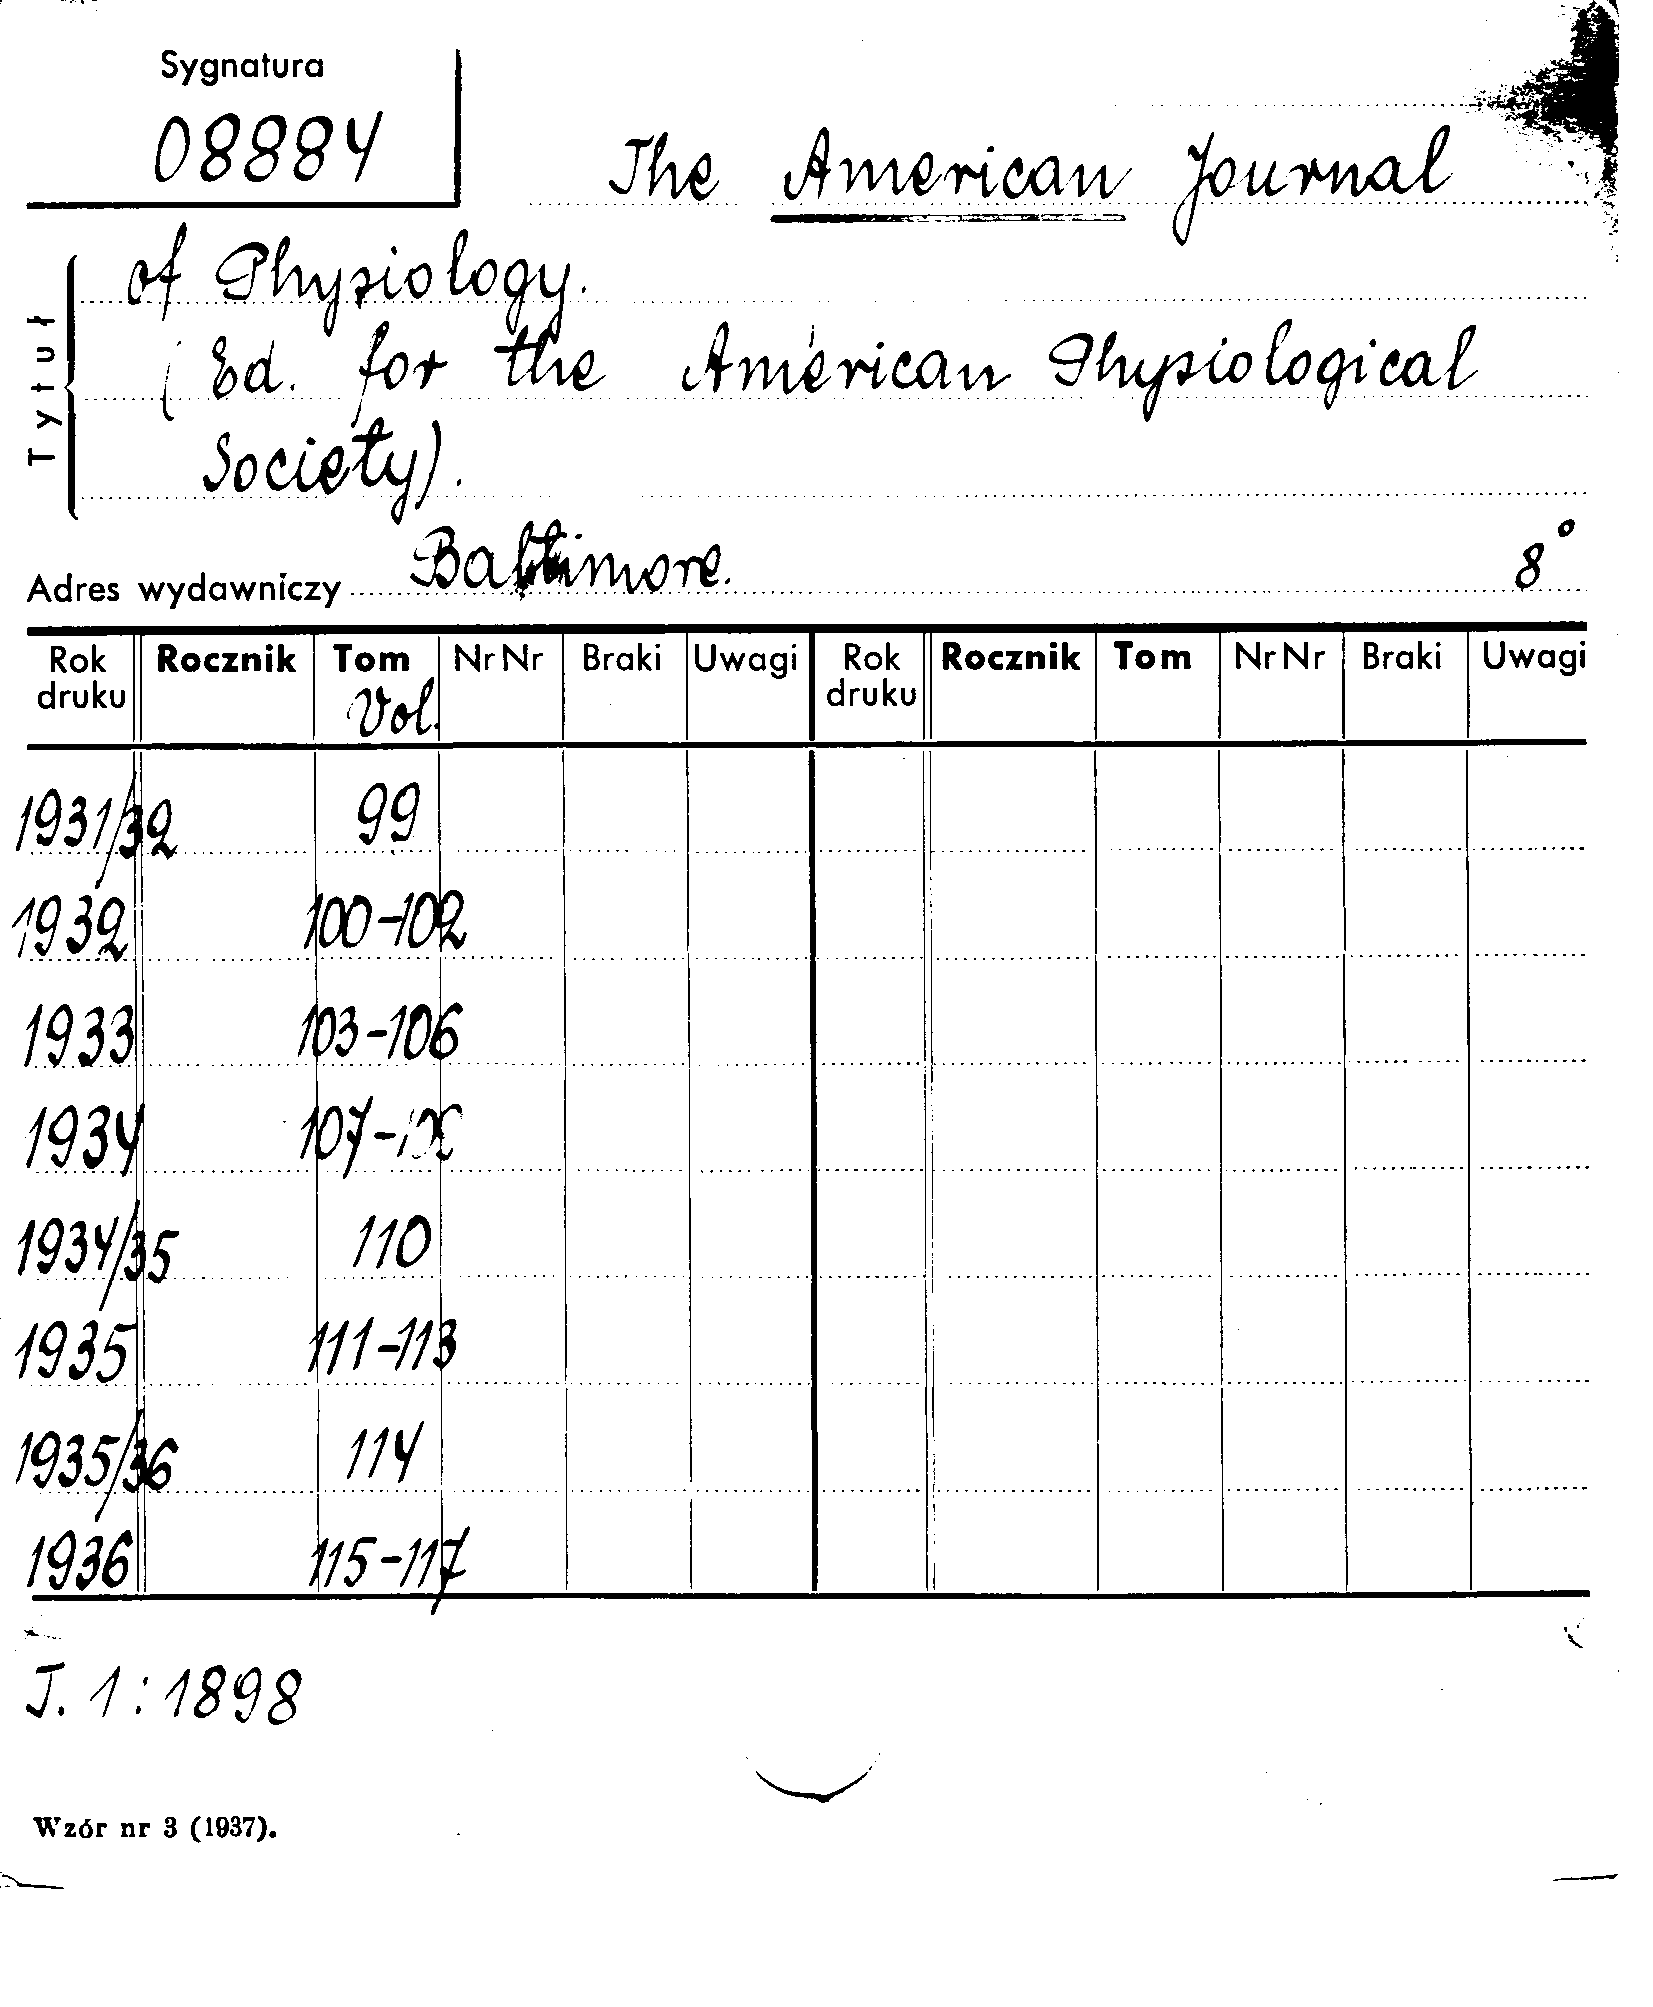 Sygnatura
08884
The American Journal
of Physiology.
(Ed. for the American Physiological
Society).
Tytuł
Adres wydawniczy Baltimore. 8°
Rok druku Rocznik Tom Nr Nr Braki Uwagi Rok druku Rocznik Tom Nr Nr Braki Uwagi
Vol.
1931/32 99
1932 100-102
1933 103-106
1934 107-
1934/35 110
1935 111-113
1935/36 114
1936 115-117
J. 1: 1898
Wzór nr 3 (1937).